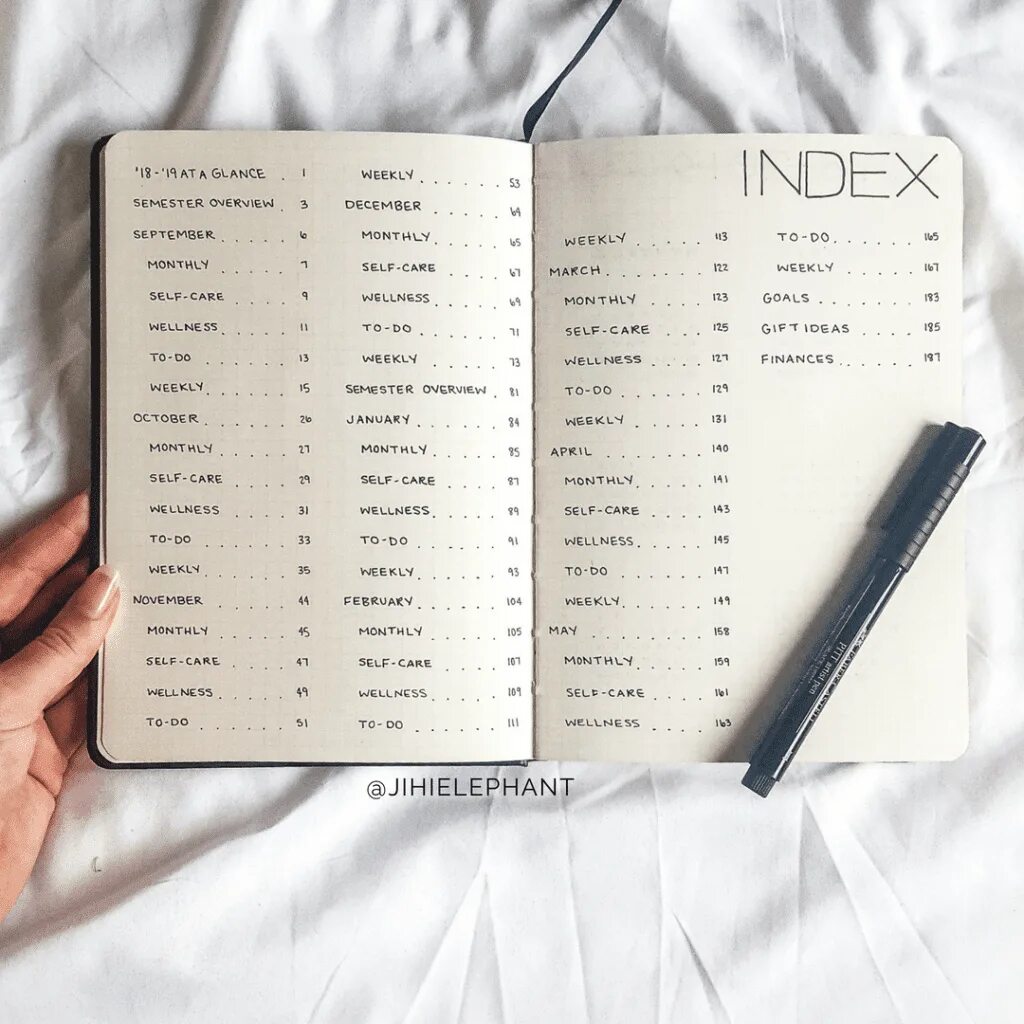 '18-'19 AT A GLANCE . 1
SEMESTER OVERVIEW . 3
SEPTEMBER . . . . . 6
MONTHLY . . . . . 7
SELF-CARE . . . . 9
WELLNESS . . . . . 11
TO-DO . . . . . . 13
WEEKLY . . . . . 15
OCTOBER . . . . . . 26
MONTHLY . . . . . 27
SELF-CARE . . . . 29
WELLNESS . . . . 31
TO-DO . . . . . . 33
WEEKLY . . . . . . 35
NOVEMBER . . . . . 44
MONTHLY . . . . . 45
SELF-CARE . . . . 47
WELLNESS . . . . . 49
TO-DO . . . . . . 51
WEEKLY . . . . . . 53
DECEMBER . . . . . 64
MONTHLY . . . . . 65
SELF-CARE . . . . 67
WELLNESS . . . . . 69
TO-DO . . . . . . 71
WEEKLY . . . . . 73
SEMESTER OVERVIEW . 81
JANUARY . . . . . . 84
MONTHLY . . . . . 85
SELF-CARE . . . . 87
WELLNESS . . . . . 89
TO-DO . . . . . . 91
WEEKLY . . . . . . 93
FEBRUARY . . . . . . 104
MONTHLY . . . . . 105
SELF-CARE . . . . 107
WELLNESS . . . . . 109
TO-DO . . . . . . 111
INDEX
WEEKLY . . . . . 113
MARCH . . . . . . . 122
MONTHLY . . . . 123
SELF-CARE . . . . 125
WELLNESS . . . . 127
TO-DO . . . . . . 129
WEEKLY . . . . . 131
APRIL . . . . . . 140
MONTHLY . . . . . 141
SELF-CARE . . . . 143
WELLNESS . . . . . 145
TO-DO . . . . . . 147
WEEKLY . . . . . . 149
MAY . . . . . . . 158
MONTHLY . . . . . 159
SELF-CARE . . . . 161
WELLNESS . . . . 163
TO-DO . . . . . . 165
WEEKLY . . . . . 167
GOALS . . . . . . 183
GIFT IDEAS . . . . 185
FINANCES . . . . . 187
PITT artist pen
@JIHIELEPHANT